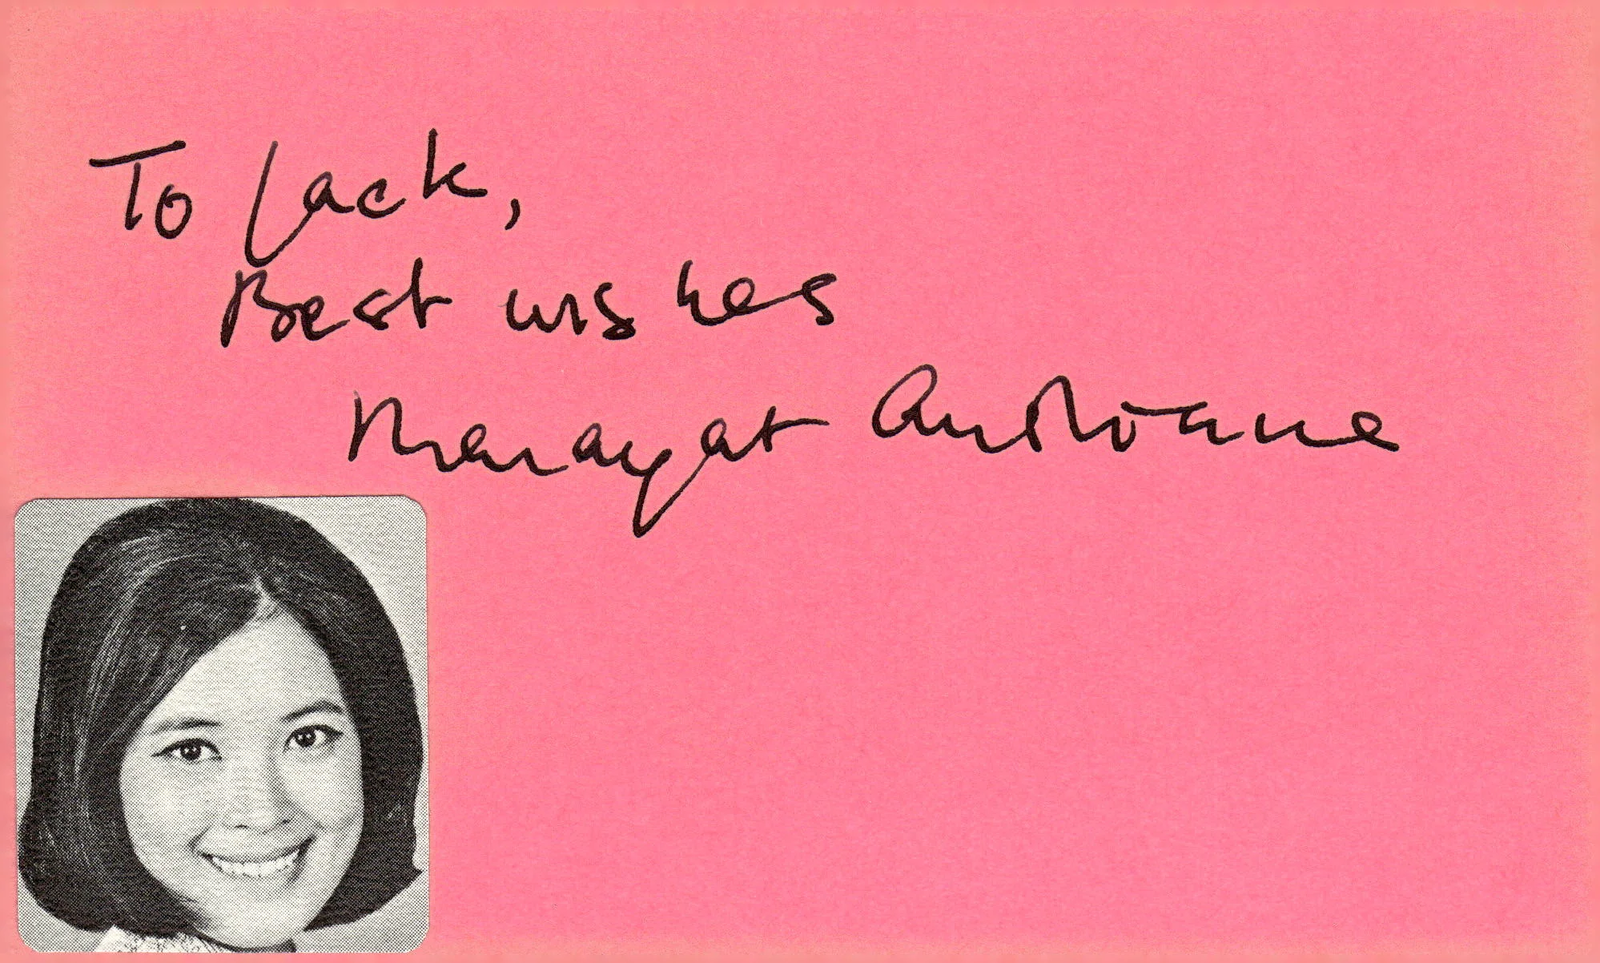 To Jack,
Best wishes
Marayat Andriane